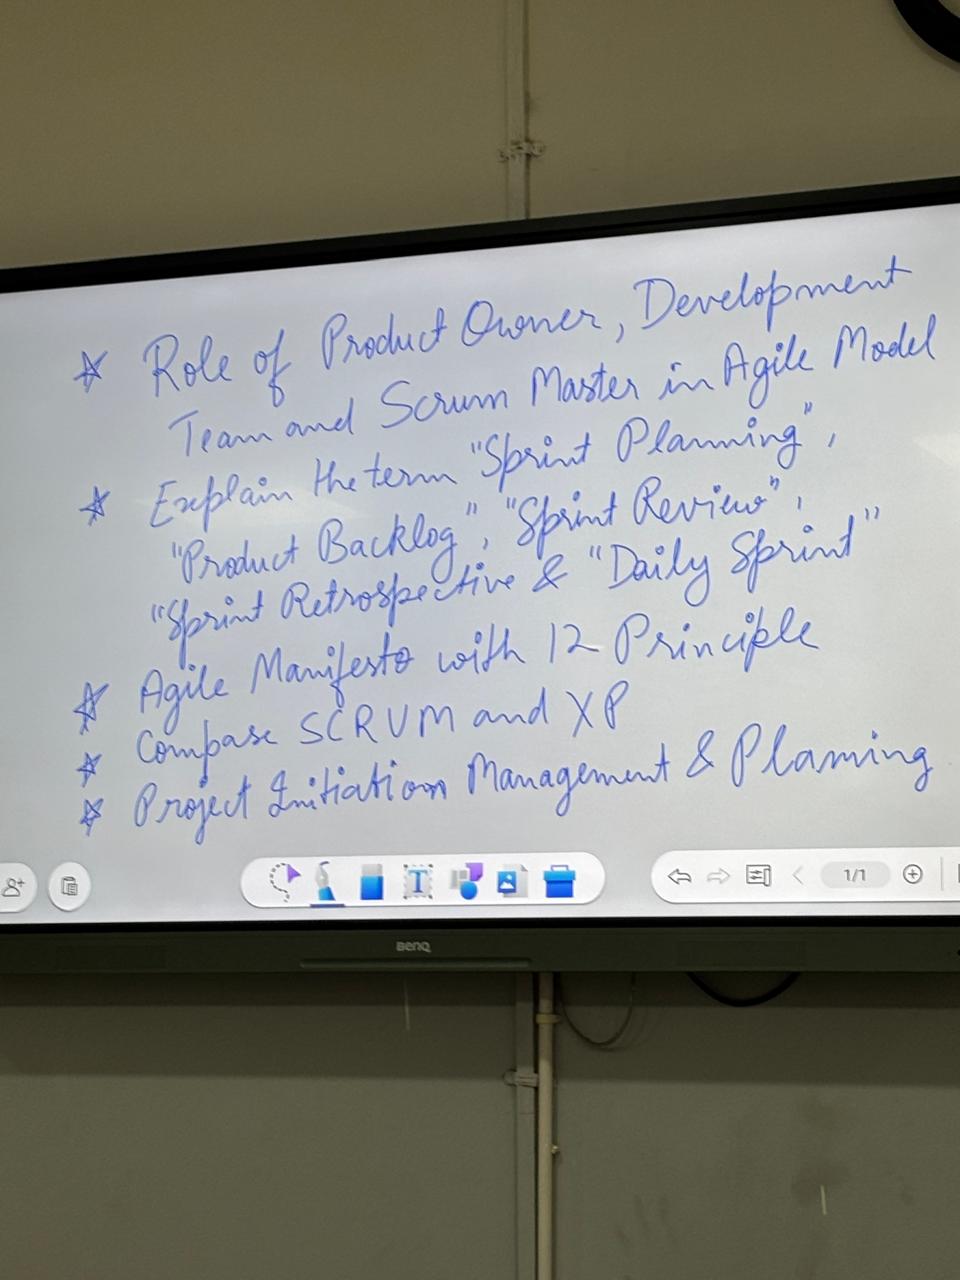 ☆ Role of Product Owner, Development
Team and Scrum Master in Agile Model
☆ Explain the term "Sprint Planning",
"Product Backlog", "Sprint Review",
"Sprint Retrospective & "Daily Sprint"
☆ Agile Manifesto with 12 Principle
☆ Compase SCRUM and XP
☆ Project Initiation Management & Planning
T
1/1
BenQ